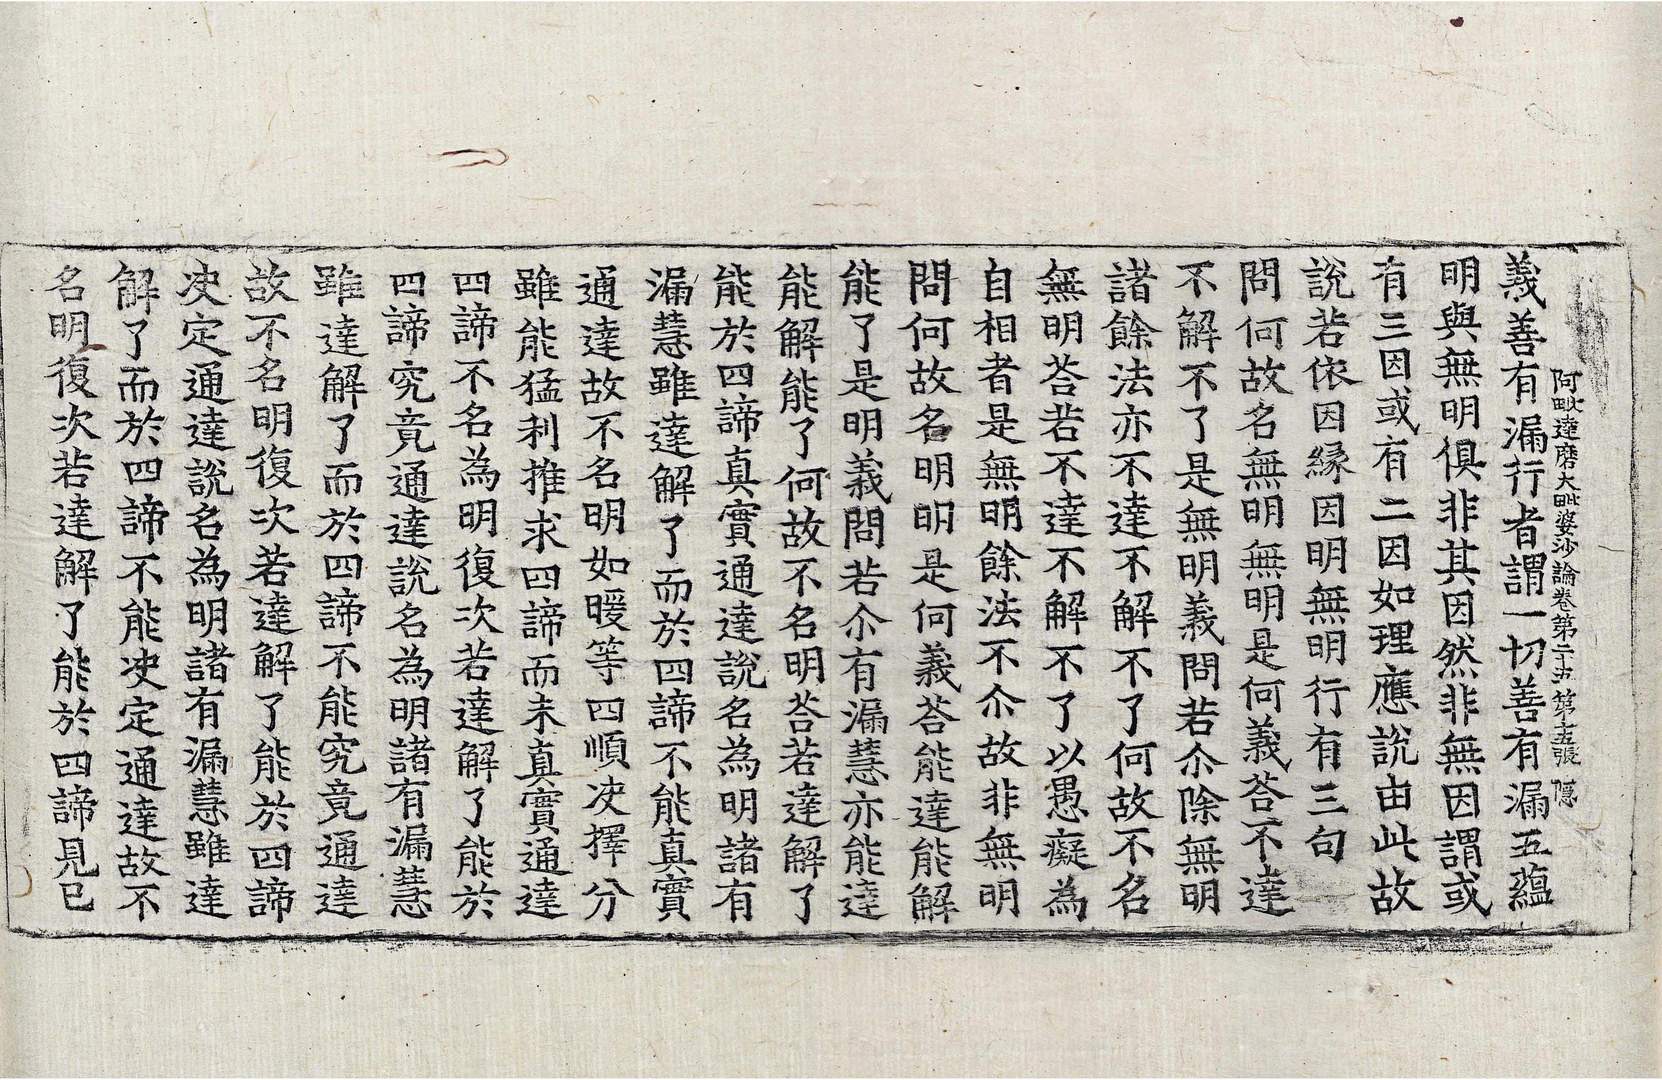 阿毗達磨大毗婆沙論卷第二十五 第十五張 隱
義善有漏行者謂一切善有漏五蘊
明與無明俱非其因然非無因謂或
有三因或有二因如理應說由此故
說若依因緣因明無明行有三句
問何故名無明無明是何義荅不達
不解不了是無明義問若尒除無明
諸餘法亦不達不解不了何故不名
無明荅若不達不解不了以愚癡為
自相者是無明餘法不尒故非無明
問何故名明明是何義荅能達能解
能了是明義問若尒有漏慧亦能達
能解能了何故不名明荅若達解了
能於四諦真實通達說名為明諸有
漏慧雖達解了而於四諦不能真實
通達故不名明如暖等四順决擇分
雖能猛利推求四諦而未真實通達
四諦不名為明復次若達解了能於
四諦究竟通達說名為明諸有漏慧
雖達解了而於四諦不能究竟通達
故不名明復次若達解了能於四諦
决定通達說名為明諸有漏慧雖達
解了而於四諦不能决定通達故不
名明復次若達解了能於四諦見已